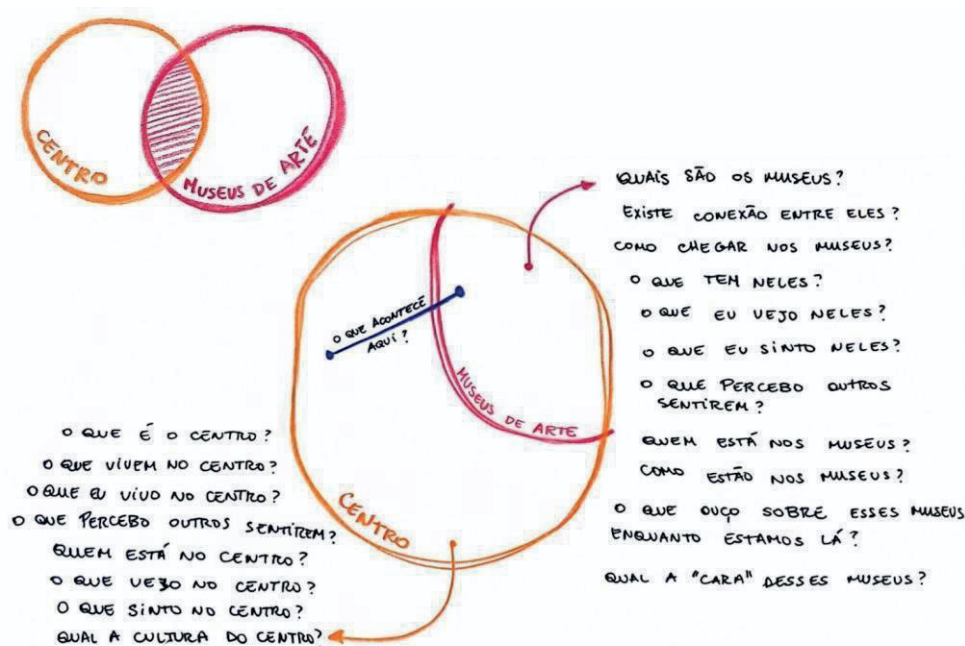 CENTRO
MUSEUS DE ARTE
QUAIS SÃO OS MUSEUS?
EXISTE CONEXÃO ENTRE ELES?
COMO CHEGAR NOS MUSEUS?
O QUE TEM NELES?
O QUE EU VEJO NELES?
O QUE EU SINTO NELES?
O QUE PERCEBO OUTROS
SENTIREM?
QUEM ESTÁ NOS MUSEUS?
COMO ESTÃO NOS MUSEUS?
O QUE OUÇO SOBRE ESSES MUSEUS
ENQUANTO ESTAMOS LÁ?
QUAL A "CARA" DESSES MUSEUS?
O QUE ACONTECE
AQUI?
MUSEUS DE ARTE
CENTRO
O QUE É O CENTRO?
O QUE VIVEM NO CENTRO?
O QUE EU VIVO NO CENTRO?
O QUE PERCEBO OUTROS SENTIREM?
QUEM ESTÁ NO CENTRO?
O QUE VEJO NO CENTRO?
O QUE SINTO NO CENTRO?
QUAL A CULTURA DO CENTRO?